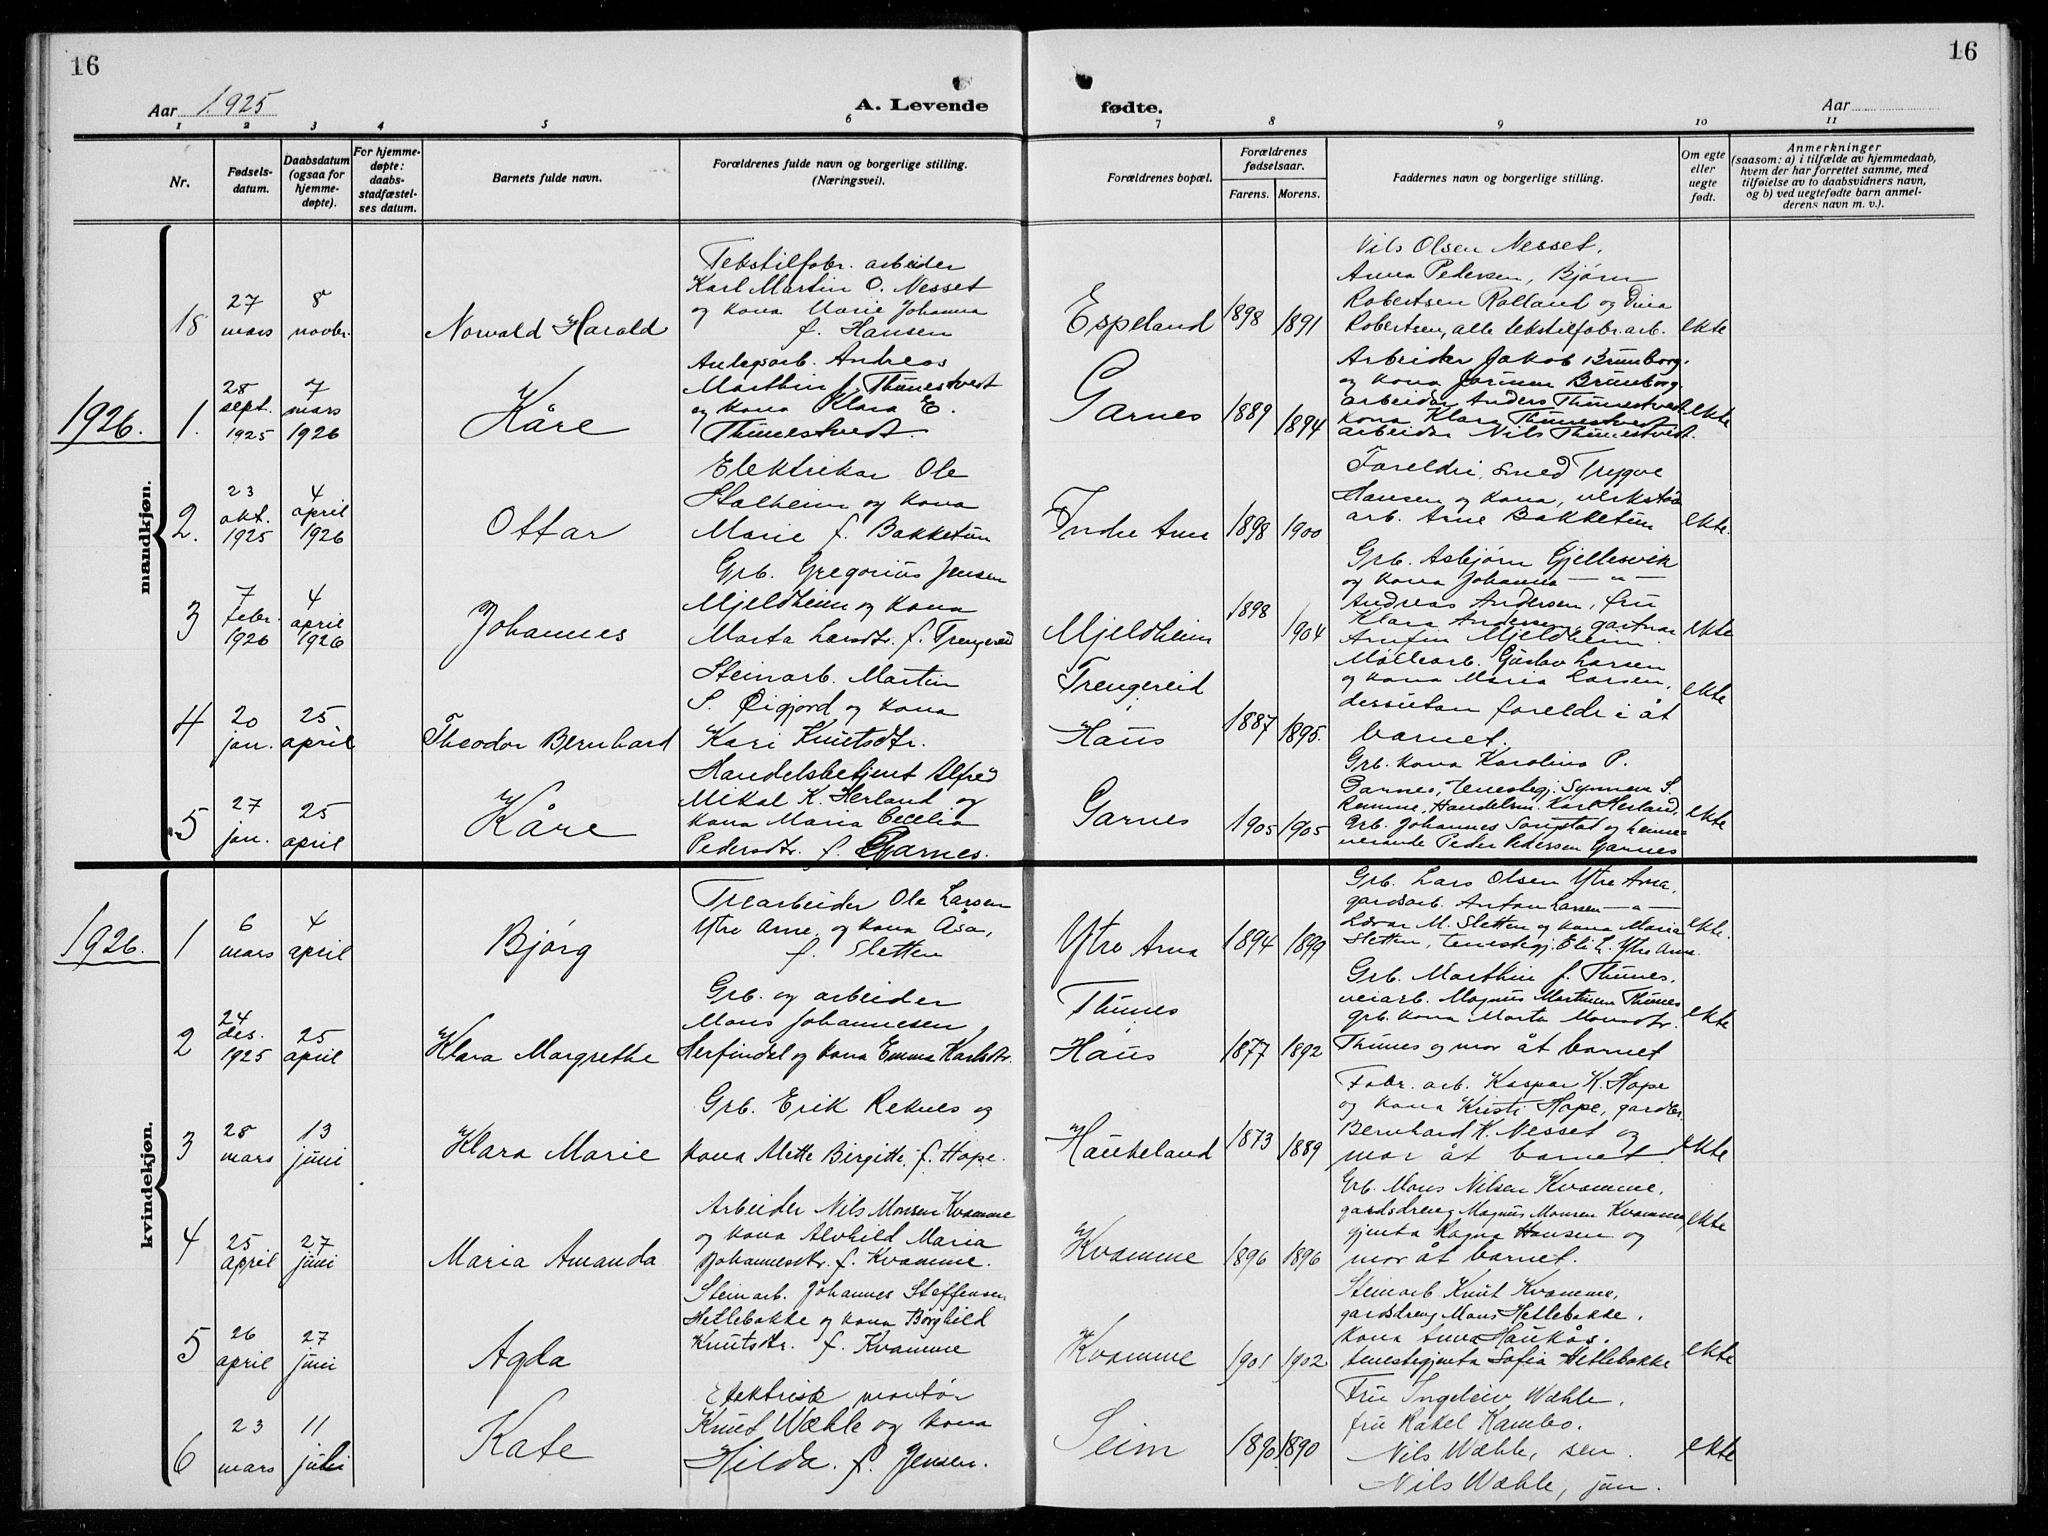 16
16
Aar 1925
A. Levende
fødte.
Aar
1 2 3 4 5 6 7 8 9 10 11
Nr.
Fødsels-
datum.
Daabsdatum
(ogsaa for
hjemme-
døpte).
For hjemme-
døpte:
daabs-
stadfæstel-
ses datum.
Barnets fulde navn.
Forældrenes fulde navn og borgerlige stilling.
(Næringsvei).
Forældrenes bopæl.
Forældrenes
fødselsaar.
Farens. Morens.
Faddernes navn og borgerlige stilling.
Om egte
eller
uegte
født.
Anmerkninger
(saasom: a) i tilfælde av hjemmedaab,
hvem der har forrettet samme, med
tilføielse av to daabsvidners navn,
og b) ved uegtefødte barn anmel-
derens navn m. v.).
mandkjøn.
15
27
mars
8
novbr.
Norvald Harald
Tekstilfabr. arbeider
Karl Martin O. Nesset
og kona Marie Johanna
f. Hansen
Espeland
1898
1891
Nils Olsen Nesset,
Anna Pedersen, Bjørn
Robertsen Rolland og Dina
Robertsen, alle tekstilfabr.arb.
ekte
1926.
1.
28
sept.
1925
7
mars
1926
Kåre
Anlegsarb. Andreas
Marthin J. Thunestvedt
og kona Klara E.
Thunestvedt.
Garnes
1889
1894
Arbeider Jakob Brunborg.
og kona Brunborg.
arbeidar Anders Thunestvedt
kona Klara Thunestvedt
arbeidar Nils Thunestvedt.
ekte
2.
23
okt.
1925
4
april
1926
Ottar
Elektrikar Ole
Stalheim og kona
Marie f. Bakketun
Indre Arna
1898
1900
Foreldri, smed Trygve
Hansen og kona, verkstad
arb. Arne Bakketun
ekte.
3
7
febr.
1926
4
april
1926
Johannes
Grb. Gregorius Jensen
Mjeldheim og kona
Marta Larsdtr. f. Trengereid
Mjeldheim
1898
1904
Grb. Asbjørn Gjellesvik
og kona Johanna — " —
Andreas Andersen, fru
Klara Andersen, gartnar
Arnfin Mjeldheim.
ekte
4
20
jan.
25
april
Theodor Bernhard
Steinarb. Martin
S. Øigjord og kona
Kari Knutsdtr.
Trengereid,
Haus
1887
1895.
Møllearb. Gustav Larsen
og kona Maria Larsen,
dessutan foreldri åt
barnet.
ekte
5
27
jan.
25
april
Kåre
Handelsbetjent Alfred
Mikal K. Herland og
kona Maria Cecelia
Pedersdtr. f. Garnes.
Garnes
1905
1905
Grb. kona Karolina P.
Garnes, tenestegj. Synneva S.
Romme, Handelsm. Karl Herland,
Grb. Johannes Songstad og heime-
verande Peder Pedersen Garnes
ekte
kvindekjøn.
1926.
1
6
mars
4
april
Bjørg
Trearbeider Ole Larsen
Ytre Arne, og kona Åsa,
f. Sletten
Ytre Arna
1894
1899
Grb. Lars Olsen Ytre Arna,
gardsarb. Anton Larsen — " —
Lærar M. Sletten og kona Maria
Sletten, tenestegj. Eli L. Ytre Arna.
ekte.
2
24
des.
1925
25
april
Klara Margrethe
Grb. og arbeider
Mons Johannesen
Herfindal og kona Emma Karlsdtr.
Thunes,
Haus
1877
1892
Grb. Marthin J. Thunes,
veiarb. Magnus Martinsen Thunes
grb. kona Marta Monsdtr.
Thunes og mor åt barnet
ekte
3
28
mars
13
juni
Klara Marie
Grb. Erik Reknes og
kona Mette Birgitte, f. Hope.
Haukeland
1873
1889
Fabr. arb. Kaspar K. Hope
og kona Kristi Hope, gardbr.
Bernhard K. Nesset og
mor åt barnet.
ekte
4
25
april
27
juni
Maria Amanda
Arbeider Nils Monsen Kvamme
og kona Alvhild Maria
Johannesdtr. f. Kvamme.
Kvamme
1896
1896
Grb. Mons Nilsen Kvamme,
gardsdreng Magnus Monsen Kvamme
gjenta Ragna Hansen og
mor åt barnet.
ekte
5
26
april
27
juni
Agda
Steinarb. Johannes Steffensen
Hetlebakke og kona Borghild
Knutsdtr. f. Kvamme
Kvamme
1901
1902
Steinarb Knut Kvamme,
gardsdreng Mons Hetlebakke.
kona Anna Haukås.
tenestegjenta Sofia Hetlebakke
ekte
6
23
mars
11
juli
Kate
Elektrisk montør
Knut Wæhle og kona
Hilda. f. Jensen.
Seim
1890
1890
Fru Ingeleiv Wæhle,
fru Rakel Kambo.
Nils Wæhle, sen.
Nils Wæhle, jun.
ekte